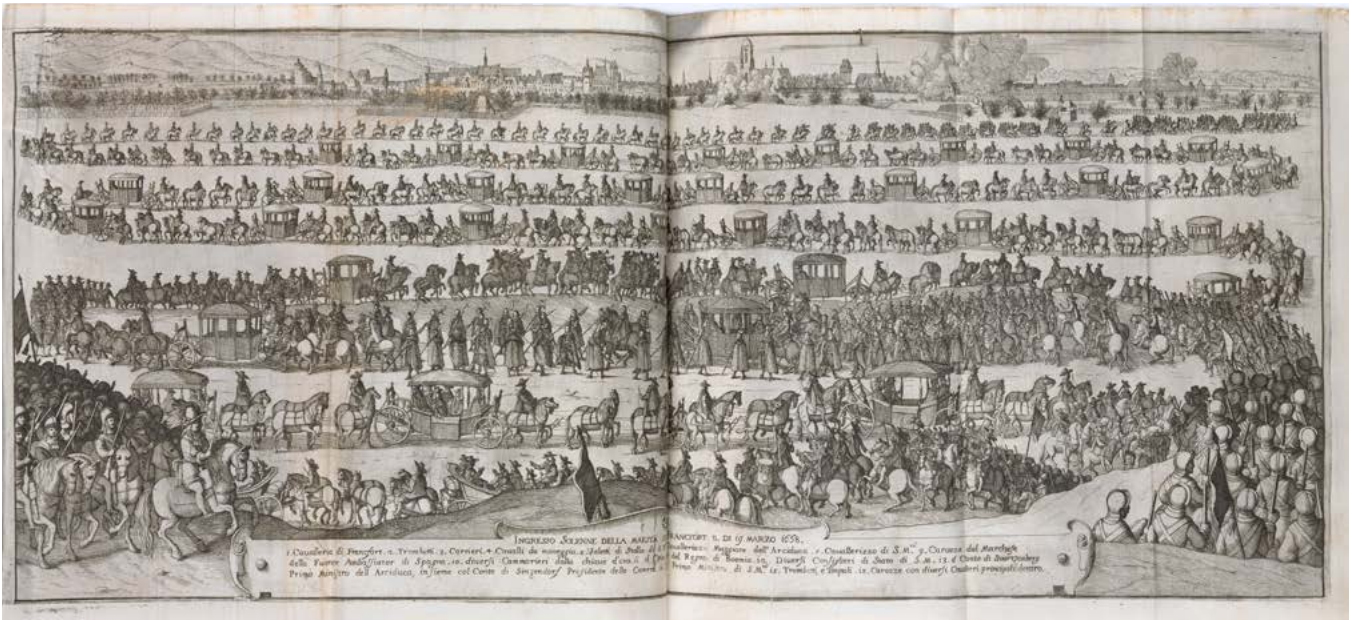 INGRESSO SOLENNE DELLA MAESTÀ FRANCFORT IL DI 19 MARZO 1658.
1. Cavalleria di Francfort. 2. Trombetti. 3. Corrieri. 4. Cavalli da maneggio. Maggiore dell' Arciduca. Cavallerizzo di S. M. 9. Carozze del Marchese
della Fuente Ambasciator di Spagna. 10. diversi Camerieri della chiave d'oro di del Regno di Boemia. 12. Diversi Consiglieri di Stato di S. M. 13. il Conte di
Primo Ministro dell Arciduca, insieme col Conte di Sinzendorf Presidente della Camera Primo Ministro di S. M. Trombetti, e Timpali. Carozze con diversi principali dentro.